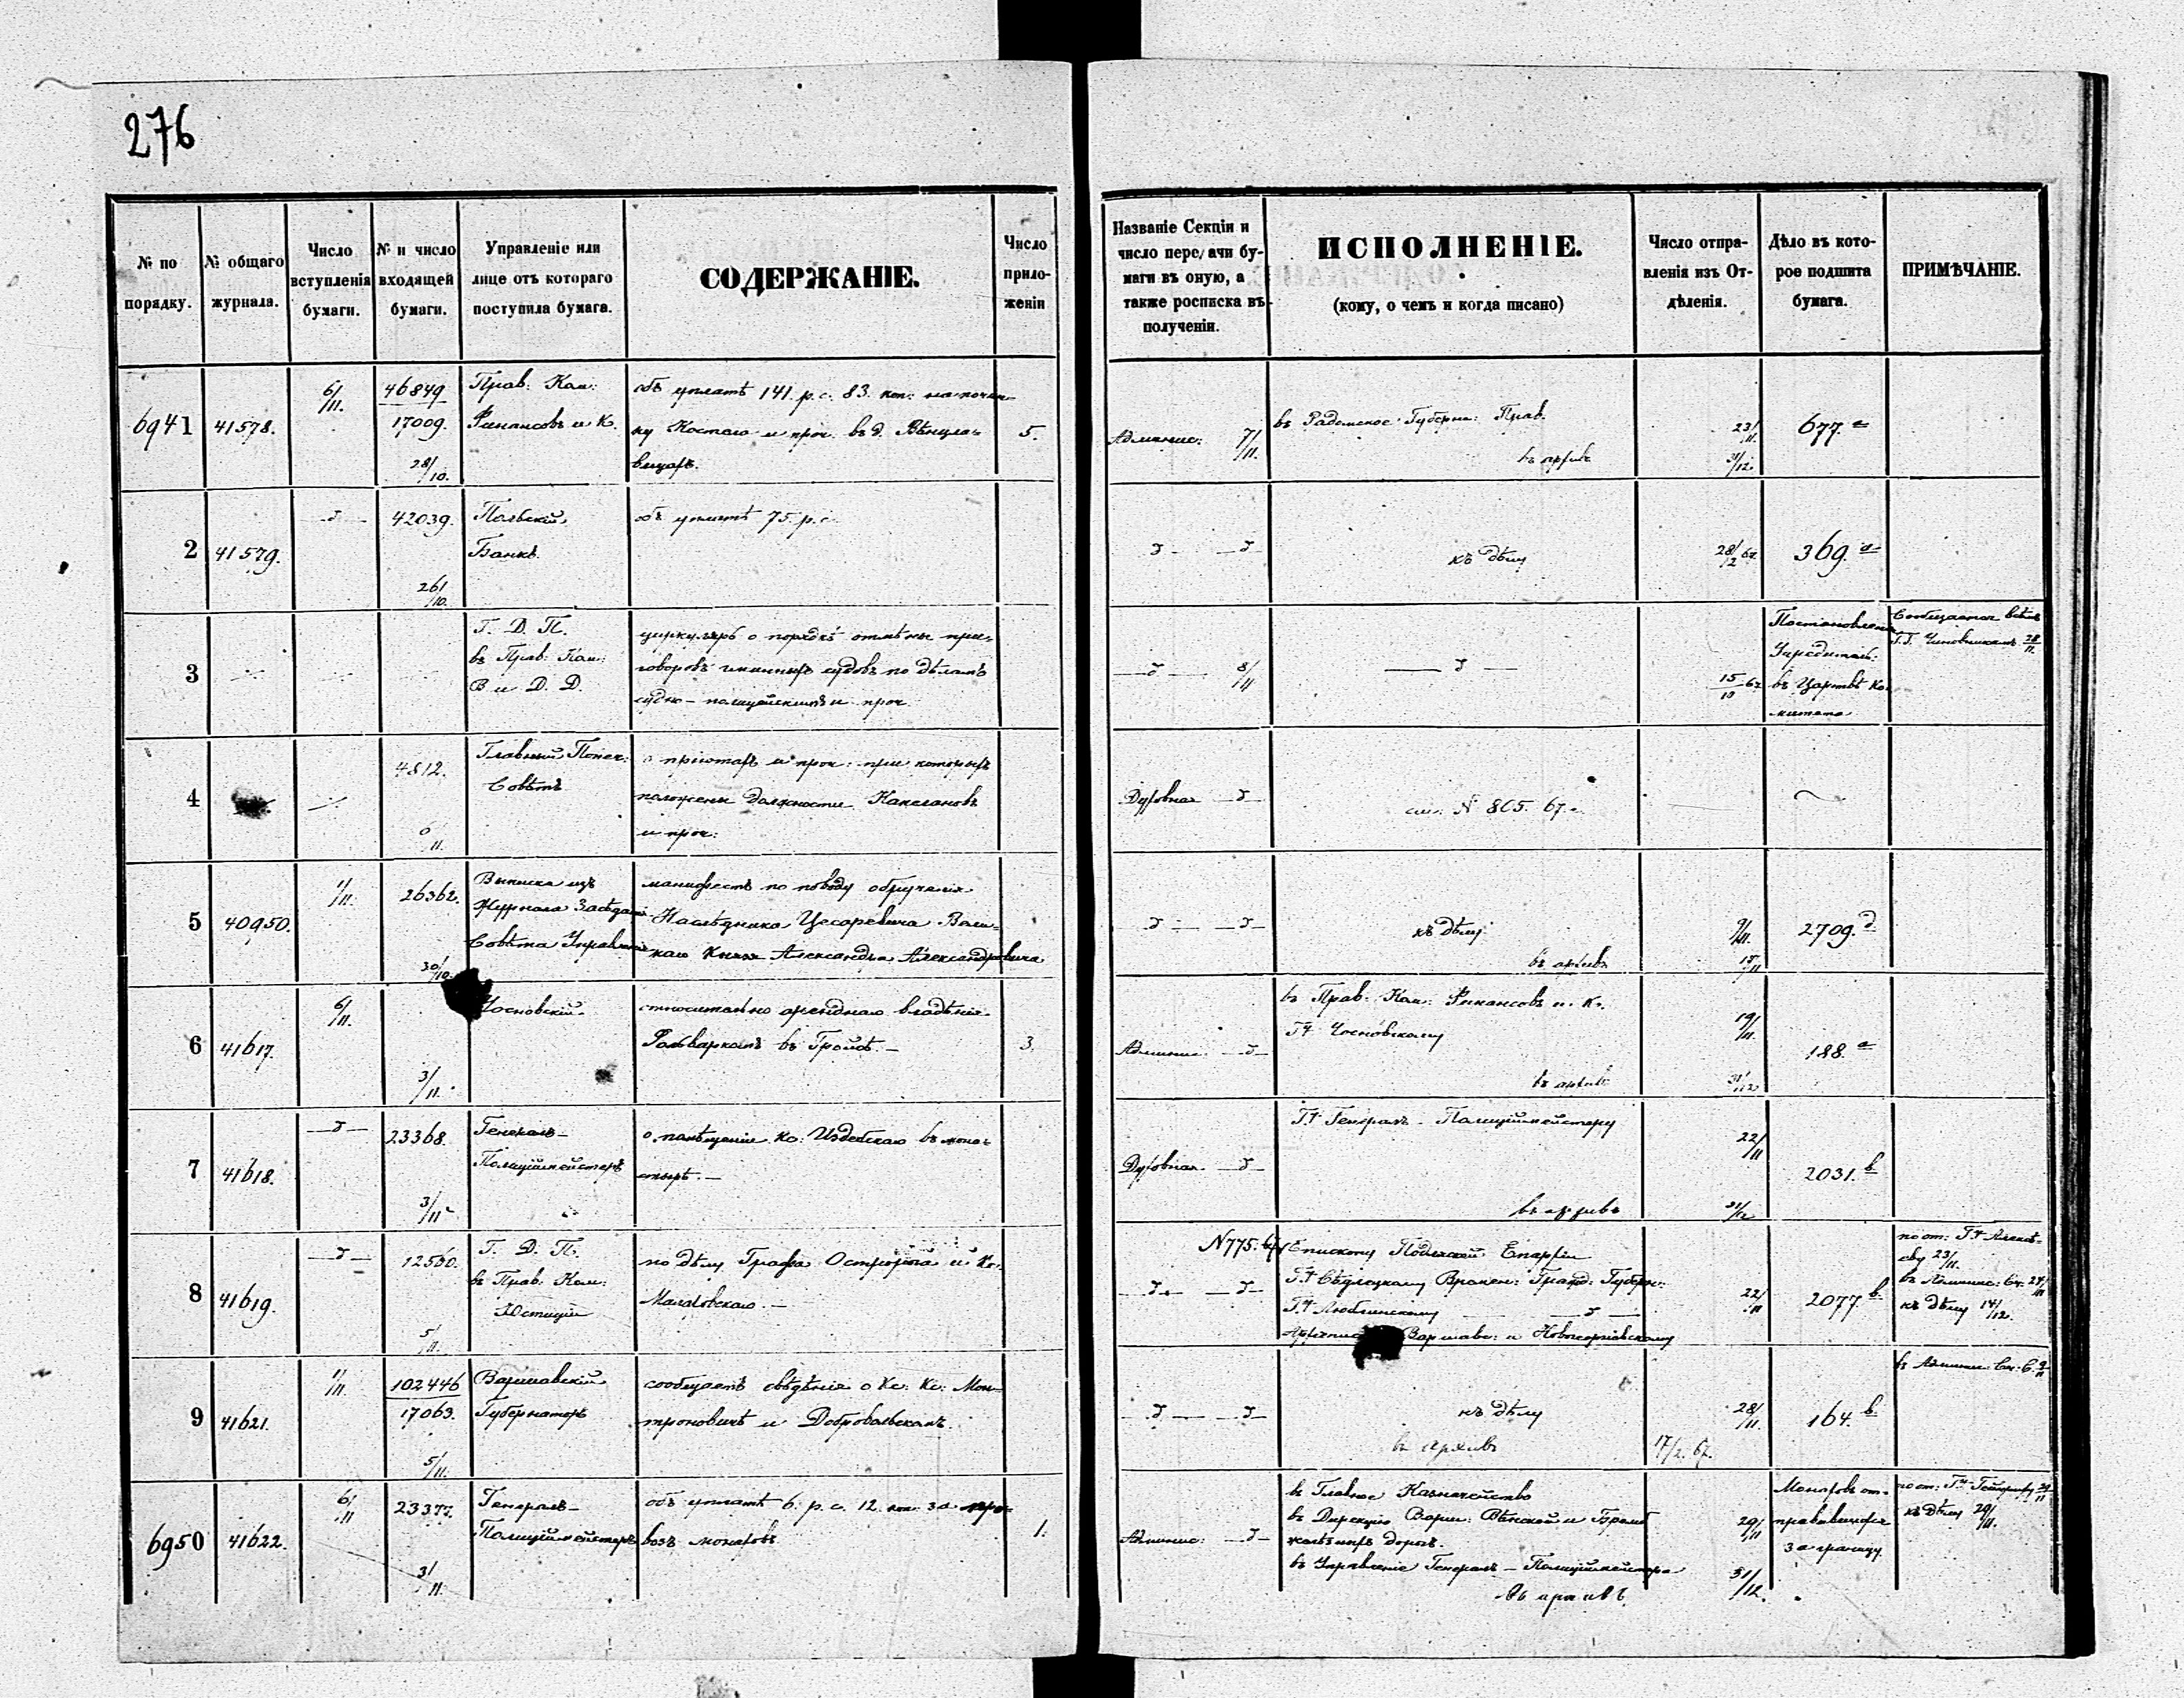 276
№ по порядку.
№ общаго журнала.
Число вступленія бумаги.
№ и число входящей бумаги.
Управленіе или лице отъ котораго поступила бумага.
СОДЕРЖАНІЕ.
Число прило-женіи
Названіе Секціи и число передачи бу-маги въ оную, а также росписка въ полученіи.
ИСПОЛНЕНІЕ.
(кому, о чемъ и когда писано)
Число отпра-вленія изъ От-дѣленія.
Дѣло въ кото-рое подшита бумага.
ПРИМѢЧАНІЕ.
6941 41578. 6/11. 46849 Прав: Ком:
17009. Финансовъ и К.
28/10.
объ уплатѣ 141. р. с. 83. коп: на почин-
ку и проч. въ д.
5.
Админис: 7/11.
въ Радомское Губерн: Прав.
въ архивъ
23/11.
31/12.
677. а
2 41579. 42039. Польскій
Банкъ.
26/10.
объ уплатѣ 75. р. с.
къ дѣлу
28/2 67.
369. а
3
Г. Д. П.
въ Прав: Ком:
В и Д. Д.
циркуляръ о порядкѣ отмѣны при-
говоровъ гминныхъ судовъ по дѣламъ
судно-полицейскимъ и проч
8/11
15/10 67
Постановленія
Учредитель:
въ Царствѣ Ко-
митета
Сообщается всѣмъ
Г.Г. Чиновникамъ 28/11.
4
4812.
6/11.
Главный Попеч:
Совѣтъ
о пріютахъ и проч: при которыхъ
положены должности Капелановъ
и проч:
Духовная
см: N 805. 67.
5 40950. 1/11. 26362.
30/10.
Выписка изъ
Журнала Засѣданія
Совѣта Управленія
манифестъ по поводу обрученія
Наслѣдника Цесаревича Вели-
каго Князя Александра Александровича
къ дѣлу
въ архивъ
9/11.
15/11
2709. д
6 41617. 6/11.
3/11.
Чосновскій.
относительно аренднаго владѣнія
Фольваркомъ въ
3.
Админис:
въ Прав: Ком: Финансовъ и. К.
Гну Чосновскому
въ архивъ
19/11.
31/12
188. а
7 41618. 23368.
3/11
Генералъ-
Полиціймейстеръ
о помѣщеніи Кс: Издебскаго въ мона-
стырѣ.
Духовная
Гну Генералъ-Полиціймейстеру
въ архивъ
22/11
31/12
2031. в
8 41619. 12560.
5/11.
Г. Д. П.
въ Прав: Ком:
Юстиціи
по дѣлу Графа Остророга и Кс:
N 775. 67
Епископу Подляской Епархіи
Гну Сѣдлецкому Времен: Гражд: Губерн:
Гну Люблинскому
Варшавс: и Новогеоргіевскому
22/11
2077. в.
23/11.
въ Админис: Сек: 24/11
къ дѣлу 14/12.
9 41621. 1/11. 102446
17063.
5/11.
Варшавскій
Губернаторъ
сообщаетъ свѣдѣнія о Кс: Кс: Мон-
троновичѣ и Добровольскомъ.
къ дѣлу
въ архивъ
28/11.
17/2. 67.
164. в.
въ Админис Сек:
6950 41622. 6/11 23377.
3/11.
Генералъ-
Полиціймейстеръ
объ уплатѣ 6. р. с. 12. коп. за про-
возъ монаховъ
1.
Админис:
въ Главное Казначейство
въ Дирекцію Варш: Вѣнской и Бромб
желѣзныхъ дорогъ.
въ Управленіе Генералъ-Полиціймейстера
въ архивъ
29/11
31/12.
Монаховъ от-
правившихся
за границу.
къ дѣлу 29/11.